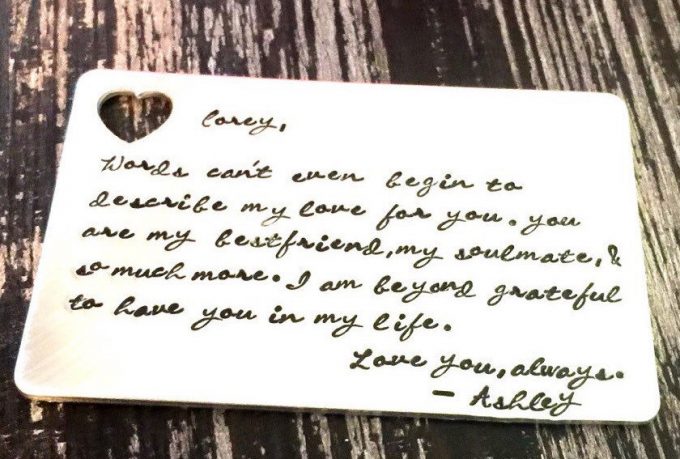 Corey,
Words can't even begin to
describe my love for you. you
are my bestfriend, my soulmate, &
so much more. I am beyond grateful
to have you in my life.
Love you, always.
- Ashley